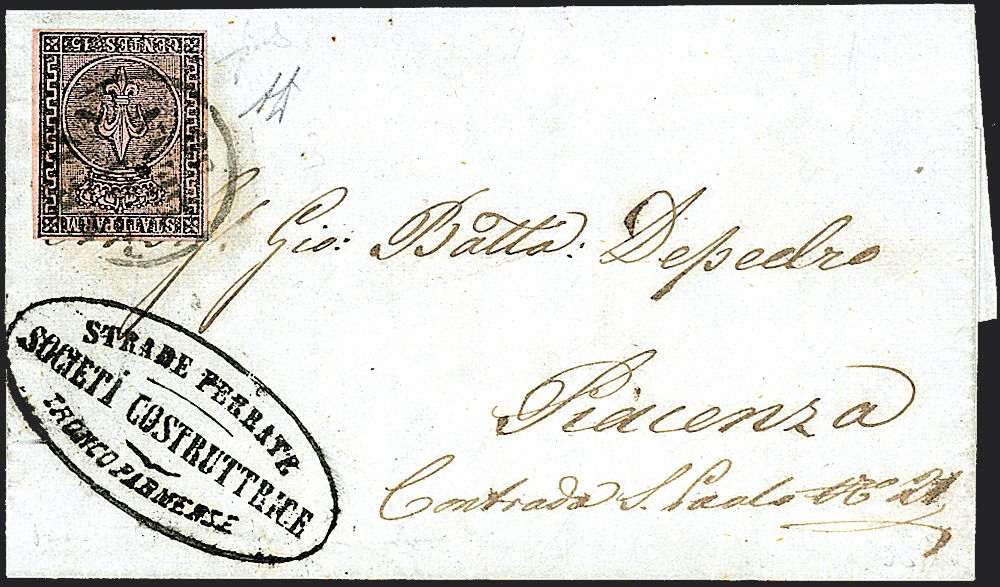 CENTES: 15
STATI PARM.
Gio: Batta: Depedro
Piacenza
Contrada S. Paolo No 21
STRADE FERRATE
SOCIETÀ COSTRUTTRICE
TRONCO PARMENSE